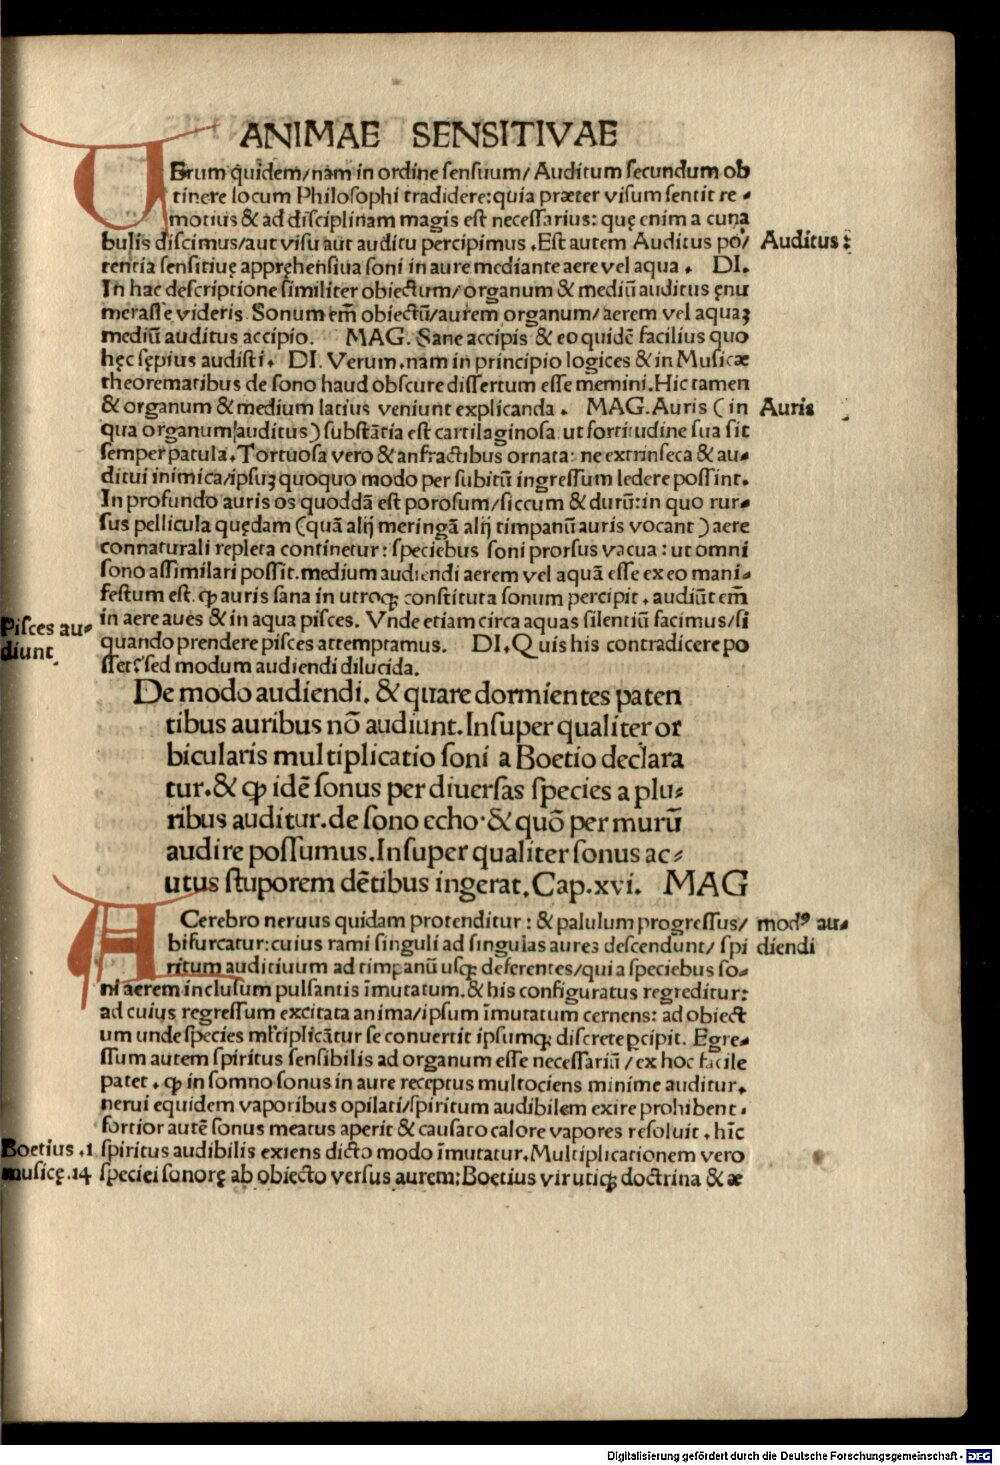 ANIMAE SENSITIVAE
VErum quidem/nam in ordine sensuum/ Auditum secundum ob
tinere locum Philosophi tradidere:quia præter visum sentit re⸗
motius & ad disciplinam magis est necessarius: quę enim a cuna
bulis discimus/aut visu aut auditu percipimus .Est autem Auditus po/
tentia sensitiuę appręhensiua soni in aure mediante aere vel aqua . DI.
In hac descriptione similiter obiectum/organum & mediū auditus ęnu
merasse videris. Sonum em̄ obiectū/aurem organum/aerem vel aquaꝫ
mediū auditus accipio. MAG. Sane accipis & eo quidē facilius quo
hęc sępius audisti. DI. Verum.nam in principio logices & in Musicæ
theorematibus de sono haud obscure dissertum esse memini.Hic tamen
& organum & medium latius veniunt explicanda . MAG.Auris (in
qua organum auditus) substātia est cartilaginosa ut fortitudine sua sit
semper patula.Tortuosa vero & anfractibus ornata: ne extrinseca & au⸗
ditui inimica/ipsuꝫ quoquo modo per subitū ingressum ledere possint.
In profundo auris os quoddā est porosum/siccum & durū:in quo rur⸗
sus pellicula quędam (quā alij meringā alij timpanū auris vocant) aere
connaturali repleta continetur: speciebus soni prorsus vacua: ut omni
sono assimilari possit.medium audiendi aerem vel aquā esse ex eo mani⸗
festum est. ꝙ auris sana in utroqꝫ constituta sonum percipit . audiūt em̄
in aere aues & in aqua pisces. Vnde etiam circa aquas silentiū facimus/si
quando prendere pisces attemptamus. DI.Quis his contradicere po
sset?sed modum audiendi dilucida.
Auditus:
Auris
Pisces au⸗
diunt
De modo audiendi. & quare dormientes paten
tibus auribus nō audiunt.Insuper qualiter or
bicularis multiplicatio soni a Boetio declara
tur.& ꝙ idē sonus per diuersas species a plu⸗
ribus auditur.de sono echo·& quō per murū
audire possumus.Insuper qualiter sonus ac⸗
utus stuporem dētibus ingerat.Cap.xvi. MAG
A Cerebro neruus quidam protenditur: & palulum progressus/
bifurcatur:cuius rami singuli ad singulas aures descendunt/ spi
ritum auditiuum ad timpanū usqꝫ deferentes/qui a speciebus so⸗
ni aerem inclusum pulsantis īmutatum.& his configuratus regreditur:
ad cuius regressum excitata anima/ipsum īmutatum cernens: ad obiect
um unde species mľtiplicātur se conuertit ipsumqꝫ discrete ꝑcipit. Egre⸗
ssum autem spiritus sensibilis ad organum esse necessariū /ex hoc facile
patet . ꝙ in somno sonus in aure receptus multociens minime auditur.
nerui equidem vaporibus opilati/spiritum audibilem exire prohibent.
fortior autē sonus meatus aperit & causato calore vapores resoluit . hīc
spiritus audibilis exiens dicto modo īmutatur.Multiplicationem vero
speciei sonorę ab obiecto versus aurem:Boetius vir utiqꝫ doctrina & æ
modꝰ au⸗
diendi
Boetius .1
musicę.14
Digitalisierung gefördert durch die Deutsche Forschungsgemeinschaft - DFG